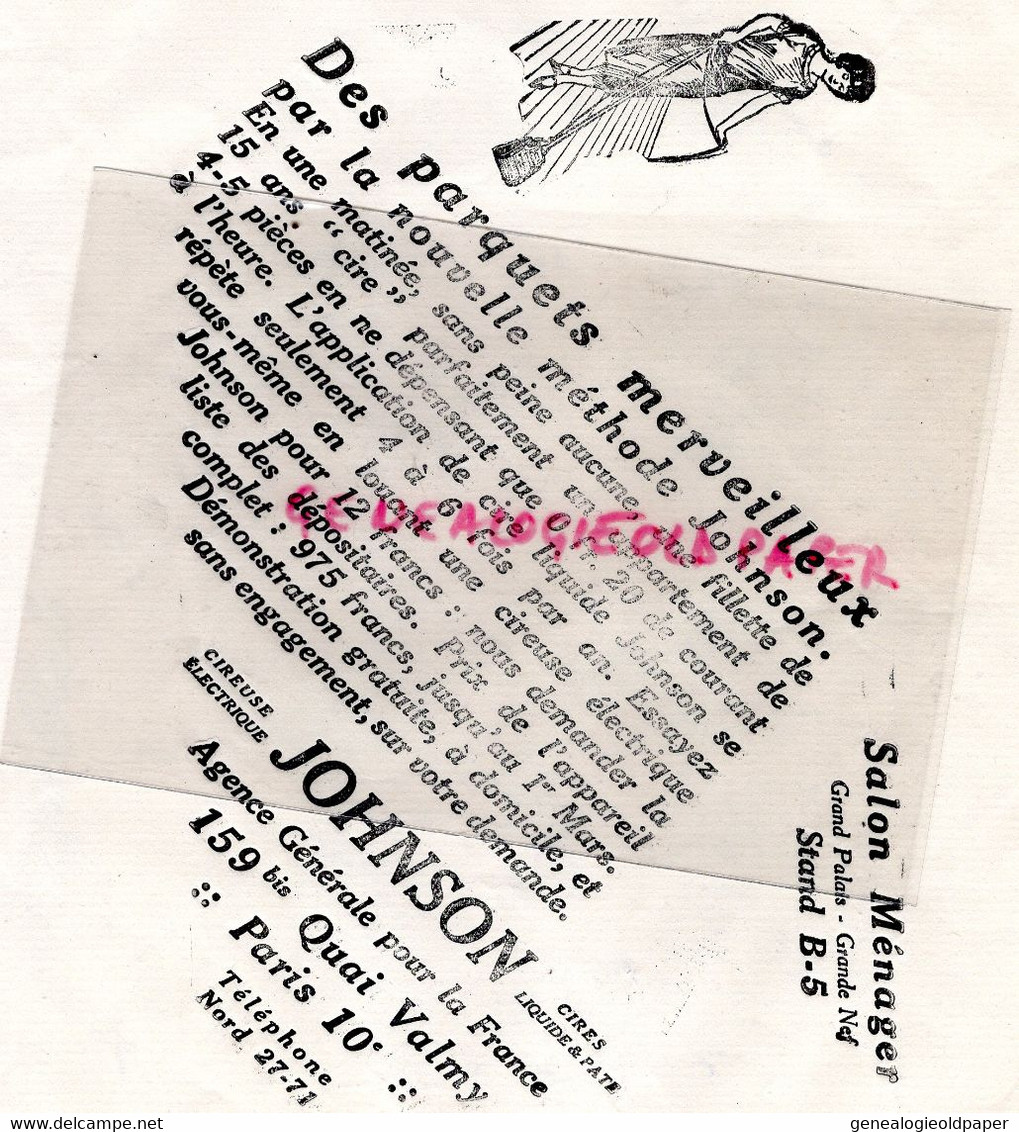 Des parquets merveilleux
par la nouvelle méthode Johnson.
En une matinée, sans peine aucune, une fillette de
15 ans “ cire ” parfaitement un appartement de
4-5 pièces en ne dépensant que 0 fr. 20 de courant
à l'heure. L'application de cire liquide Johnson se
répète seulement 4 à 6 fois par an. Essayez
vous-même en louant une cireuse électrique
Johnson pour 12 francs : nous demander la
liste des dépositaires. Prix de l'appareil
complet : 975 francs, jusqu'au 1er Mars.
Démonstration gratuite, à domicile, et
sans engagement, sur votre demande.
CIREUSE
ÉLECTRIQUE
JOHNSON
CIRES
LIQUIDE & PATE
Agence Générale pour la France
159 bis Quai Valmy
Paris 10e
Téléphone
Nord 27-71
Salon Ménager
Grand Palais - Grande Nef
Stand B-5
GENEALOGIEOLDPAPER
delcampe.net
genealogieoldpaper